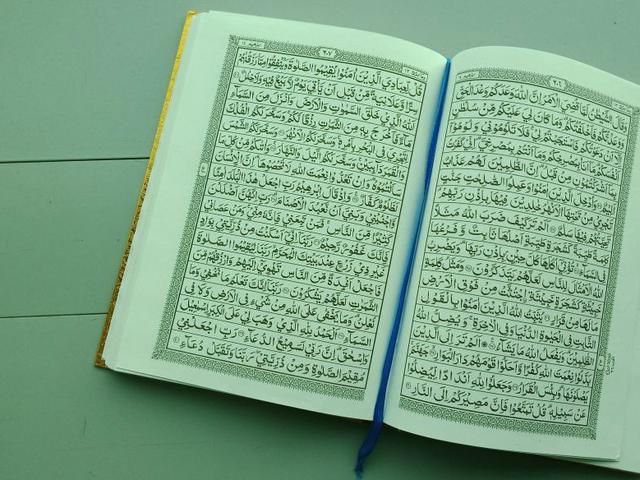 ٣٠٦
وَقَالَ الشَّيْطٰنُ لَمَّا قُضِيَ الْاَمْرُ اِنَّ اللّٰهَ وَعَدَكُمْ وَعْدَ الْحَقِّ
وَوَعَدْتُّكُمْ فَاَخْلَفْتُكُمْ وَمَا كَانَ لِيَ عَلَيْكُمْ مِّنْ سُلْطٰنٍ
اِلَّآ اَنْ دَعَوْتُكُمْ فَاسْتَجَبْتُمْ لِيْ فَلَا تَلُوْمُوْنِيْ وَلُوْمُوْٓا
اَنْفُسَكُمْ مَآ اَنَا بِمُصْرِخِكُمْ وَمَآ اَنْتُمْ بِمُصْرِخِيَّ اِنِّيْ كَفَرْتُ
بِمَآ اَشْرَكْتُمُوْنِ مِنْ قَبْلُ اِنَّ الظّٰلِمِيْنَ لَهُمْ عَذَابٌ
اَلِيْمٌ وَاُدْخِلَ الَّذِيْنَ اٰمَنُوْا وَعَمِلُوا الصّٰلِحٰتِ جَنّٰتٍ
تَجْرِيْ مِنْ تَحْتِهَا الْاَنْهٰرُ خٰلِدِيْنَ فِيْهَا بِاِذْنِ رَبِّهِمْ
تَحِيَّتُهُمْ فِيْهَا سَلٰمٌ اَلَمْ تَرَ كَيْفَ ضَرَبَ اللّٰهُ مَثَلًا
كَلِمَةً طَيِّبَةً كَشَجَرَةٍ طَيِّبَةٍ اَصْلُهَا ثَابِتٌ وَّفَرْعُهَا
فِي السَّمَآءِ تُؤْتِيْٓ اُكُلَهَا كُلَّ حِيْنٍ بِاِذْنِ رَبِّهَا وَيَضْرِبُ
اللّٰهُ الْاَمْثَالَ لِلنَّاسِ لَعَلَّهُمْ يَتَذَكَّرُوْنَ وَمَثَلُ كَلِمَةٍ
خَبِيْثَةٍ كَشَجَرَةٍ خَبِيْثَةِ اِجْتُثَّتْ مِنْ فَوْقِ الْاَرْضِ
مَا لَهَا مِنْ قَرَارٍ يُثَبِّتُ اللّٰهُ الَّذِيْنَ اٰمَنُوْا بِالْقَوْلِ
الثَّابِتِ فِي الْحَيٰوةِ الدُّنْيَا وَفِي الْاٰخِرَةِ وَيُضِلُّ اللّٰهُ
الظّٰلِمِيْنَ وَيَفْعَلُ اللّٰهُ مَا يَشَآءُ اَلَمْ تَرَ اِلَى الَّذِيْنَ
بَدَّلُوْا نِعْمَتَ اللّٰهِ كُفْرًا وَّاَحَلُّوْا قَوْمَهُمْ دَارَ الْبَوَارِ جَهَنَّمَ
يَصْلَوْنَهَا وَبِئْسَ الْقَرَارُ وَجَعَلُوْا لِلّٰهِ اَنْدَادًا لِّيُضِلُّوْا
عَنْ سَبِيْلِهٖ قُلْ تَمَتَّعُوْا فَاِنَّ مَصِيْرَكُمْ اِلَى النَّارِ
٣٠٧
قُلْ لِّعِبَادِيَ الَّذِيْنَ اٰمَنُوْا يُقِيْمُوا الصَّلٰوةَ وَيُنْفِقُوْا مِمَّا رَزَقْنٰهُمْ
سِرًّا وَّعَلَانِيَةً مِّنْ قَبْلِ اَنْ يَّأْتِيَ يَوْمٌ لَّا بَيْعٌ فِيْهِ وَلَا خِلٰلٌ
اَللّٰهُ الَّذِيْ خَلَقَ السَّمٰوٰتِ وَالْاَرْضَ وَاَنْزَلَ مِنَ السَّمَآءِ
مَآءً فَاَخْرَجَ بِهٖ مِنَ الثَّمَرٰتِ رِزْقًا لَّكُمْ وَسَخَّرَ لَكُمُ الْفُلْكَ
لِتَجْرِيَ فِي الْبَحْرِ بِاَمْرِهٖ وَسَخَّرَ لَكُمُ الْاَنْهٰرَ وَسَخَّرَ لَكُمُ الشَّمْسَ
وَالْقَمَرَ دَآئِبَيْنِ وَسَخَّرَ لَكُمُ الَّيْلَ وَالنَّهَارَ وَاٰتٰىكُمْ مِّنْ كُلِّ مَا
سَاَلْتُمُوْهُ وَاِنْ تَعُدُّوْا نِعْمَتَ اللّٰهِ لَا تُحْصُوْهَا اِنَّ الْاِنْسَانَ
لَظَلُوْمٌ كَفَّارٌ وَاِذْ قَالَ اِبْرٰهِيْمُ رَبِّ اجْعَلْ هٰذَا الْبَلَدَ اٰمِنًا
وَّاجْنُبْنِيْ وَبَنِيَّ اَنْ نَّعْبُدَ الْاَصْنَامَ رَبِّ اِنَّهُنَّ اَضْلَلْنَ
كَثِيْرًا مِّنَ النَّاسِ فَمَنْ تَبِعَنِيْ فَاِنَّهٗ مِنِّيْ وَمَنْ عَصَانِيْ
فَاِنَّكَ غَفُوْرٌ رَّحِيْمٌ رَبَّنَآ اِنِّيْٓ اَسْكَنْتُ مِنْ ذُرِّيَّتِيْ بِوَادٍ
غَيْرِ ذِيْ زَرْعٍ عِنْدَ بَيْتِكَ الْمُحَرَّمِ رَبَّنَا لِيُقِيْمُوا الصَّلٰوةَ
فَاجْعَلْ اَفْئِدَةً مِّنَ النَّاسِ تَهْوِيْٓ اِلَيْهِمْ وَارْزُقْهُمْ مِّنَ
الثَّمَرٰتِ لَعَلَّهُمْ يَشْكُرُوْنَ رَبَّنَآ اِنَّكَ تَعْلَمُ مَا نُخْفِيْ وَمَا
نُعْلِنُ وَمَا يَخْفٰى عَلَى اللّٰهِ مِنْ شَيْءٍ فِي الْاَرْضِ وَلَا فِي
السَّمَآءِ اَلْحَمْدُ لِلّٰهِ الَّذِيْ وَهَبَ لِيْ عَلَى الْكِبَرِ اِسْمٰعِيْلَ
وَاِسْحٰقَ اِنَّ رَبِّيْ لَسَمِيْعُ الدُّعَآءِ رَبِّ اجْعَلْنِيْ
مُقِيْمَ الصَّلٰوةِ وَمِنْ ذُرِّيَّتِيْ رَبَّنَا وَتَقَبَّلْ دُعَآءِ